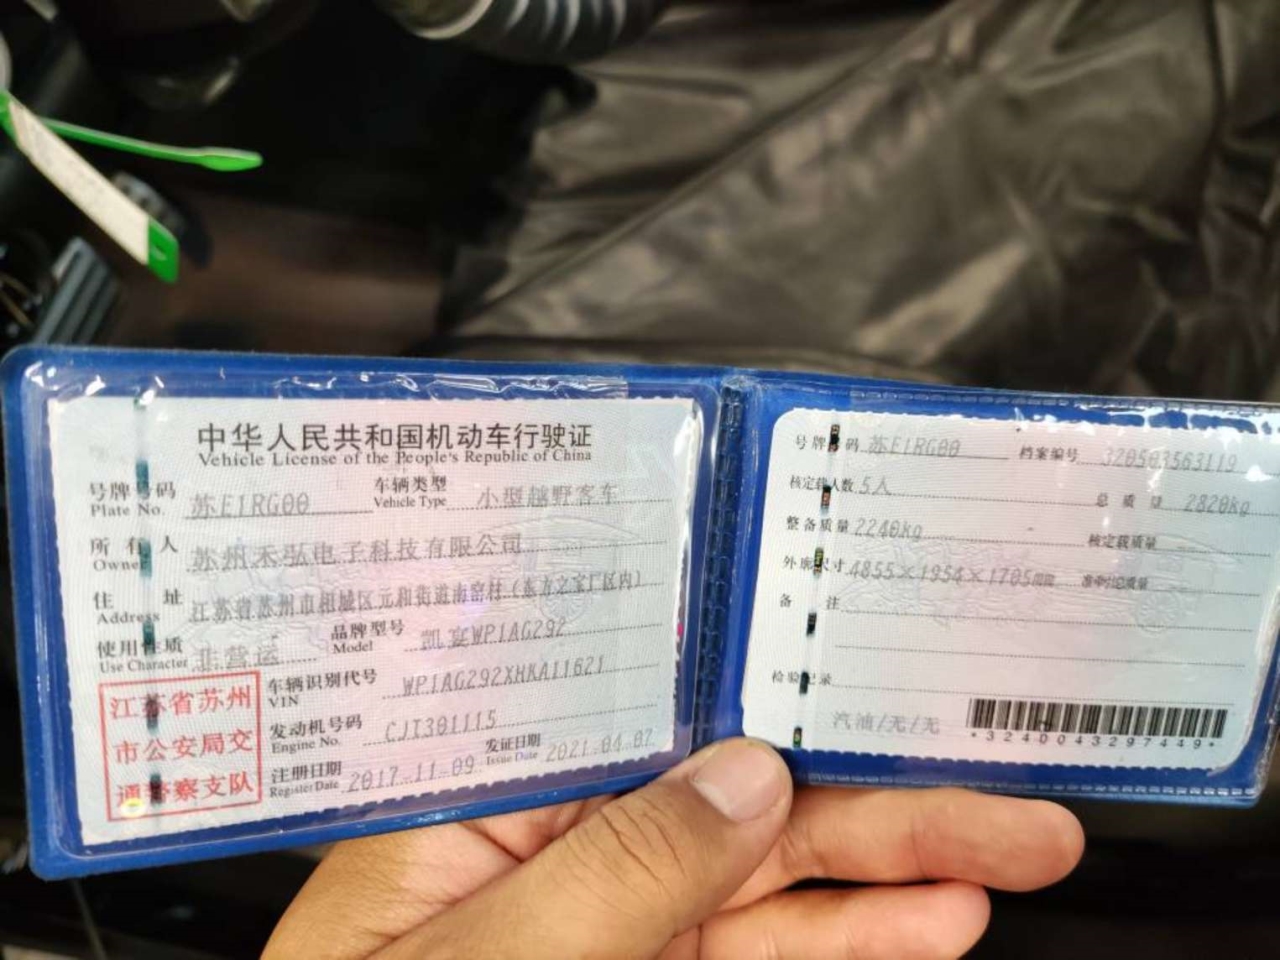 中华人民共和国机动车行驶证
Vehicle License of the People's Republic of China
号牌号码 苏E1RG00 车辆类型 小型越野客车
Plate No. Vehicle Type
所有人 苏州禾弘电子科技有限公司
Owner
住址 江苏省苏州市相城区元和街道南窑村(东方之宝厂区内)
Address
使用性质 非营运 品牌型号 凯宴WP1AG292
Use Character Model
江苏省苏州
市公安局交
通警察支队
车辆识别代号 WP1AG292XHKA11621
VIN
发动机号码 CJT301115
Engine No.
发证日期 2021.04.07
Issue Date
注册日期 2017.11.09
Register Date
号牌号码 苏E1RG00 档案编号 320503563119
核定载人数 5人 总质量 2820kg
整备质量 2240kg 核定载质量 --
外廓尺寸 4855×1954×1705mm 准牵引总质量
备注
检验记录
汽油/无/无
*3240043297449*